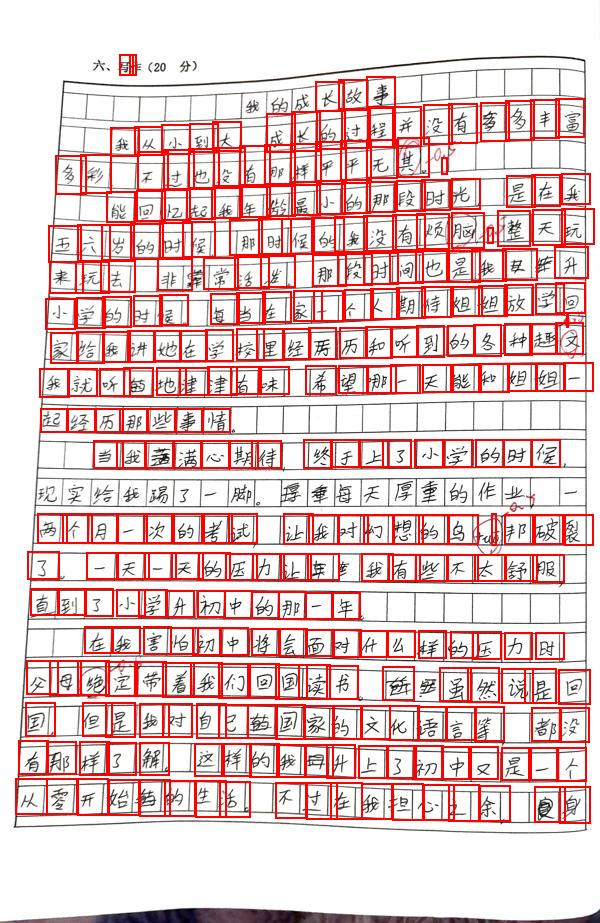 六、写作(20 分)
我的成长故事
我从小到大 成长的过程并没有多多丰富
多彩 不过也没有那样平平无其。
能回忆起我年龄最小的那段时光, 是在我
五六岁的时候 那时候的我没有烦脑, 整天玩
来玩去 非常活发。 那段时间也是我升
小学的时候 每当在家一个人期待姐姐放学回
家给我讲她在学校里经历和听到的各种趣文
我就听的津津有味, 希望哪一天能和姐姐一
起经历那些事情。
当我满心期待, 终于上了小学的时候,
现实给我踢了一脚。厚重每天厚重的作业, 一
两个月一次的考试, 让我对幻想的乌tuō邦破裂
了。 一天一天的压力让我有些不太舒服,
直到了小学升初中的那一年。
在我害怕初中将会面对什么样的压力时
父母绝定带着我们回国读书。 虽然说是回
国, 但是我对自己国家的文化语言等 都没
有那样了解。 这样的我升上了初中又是一个
从零开始的生活。 不过在我担心之余, 身